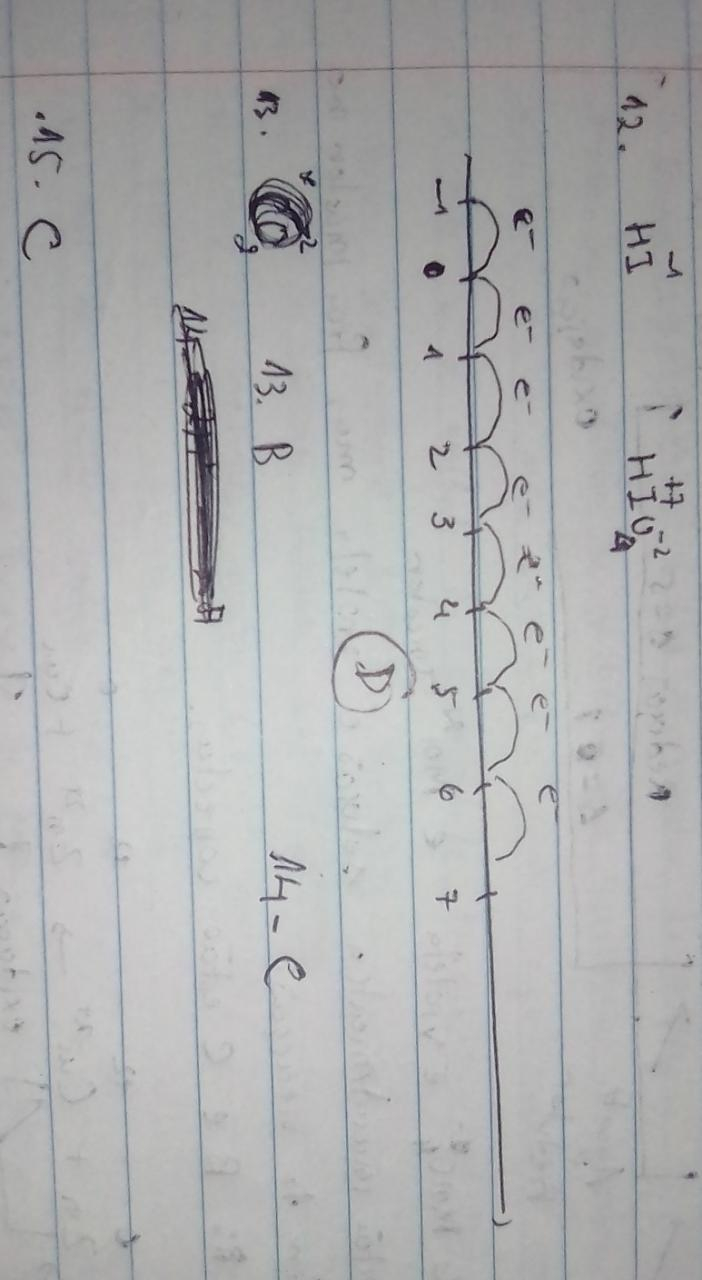 12. HI⁻¹ HI⁺⁷O₄⁻²
e⁻ e⁻ e⁻ e⁻ e⁻ e⁻ e⁻ e⁻
-1 0 1 2 3 4 5 6 7
D
13. 13. B 14-C
14
.15. C